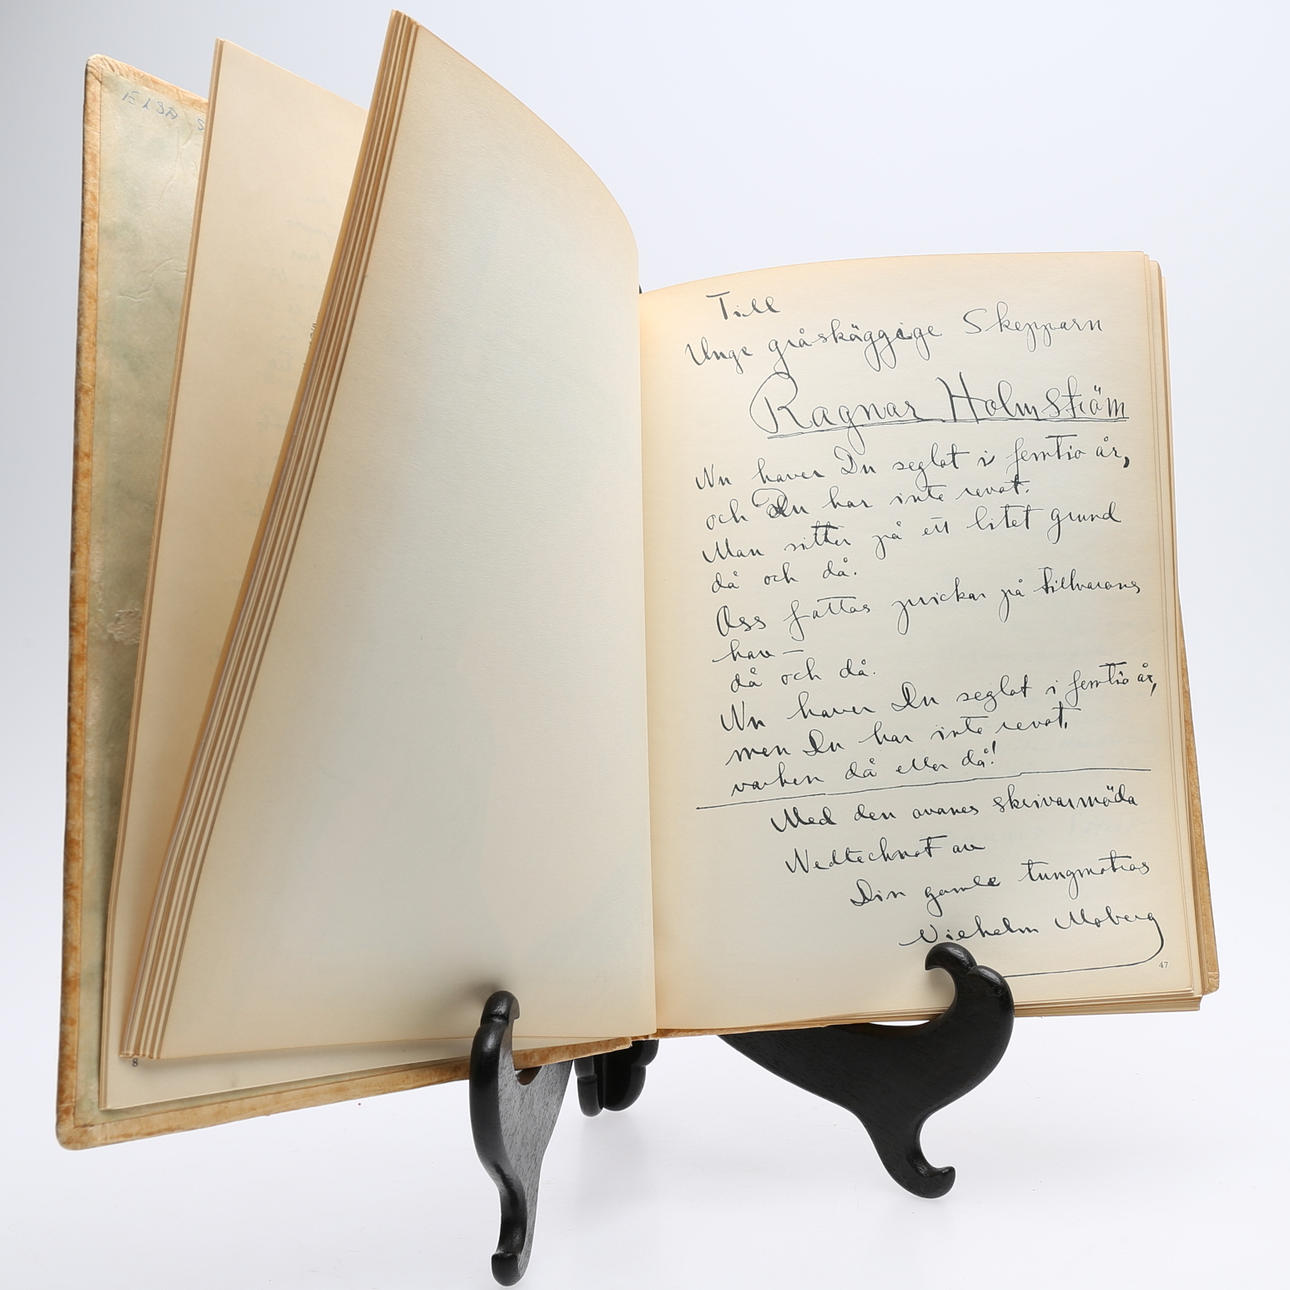 ELSA S
8
Till
Unge gråskäggige Skepparn
Ragnar Holmström
Nu haver Du seglat i femtio år,
och Du har inte revat.
Man sitter på ett litet grund
då och då.
Oss fattas prickar på tillvarons
hav —
då och då.
Nu haver Du seglat i femtio år,
men Du har inte revat,
varken då eller då!
Med den ovanes skrivarmöda
Nedtecknat av
Din gamle
Vilhelm Moberg
47